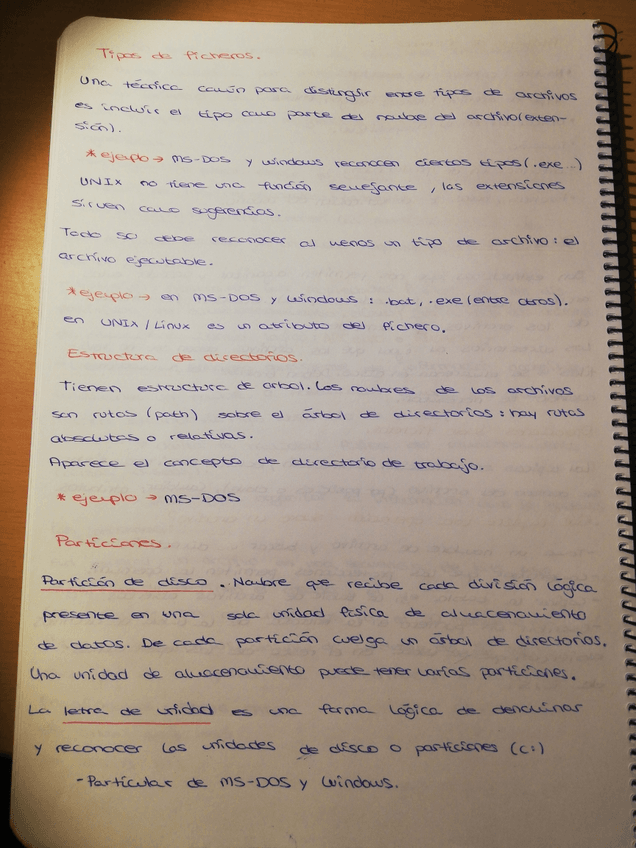 Tipos de ficheros.
Una técnica común para distinguir entre tipos de archivos
es incluir el tipo como parte del nombre del archivo (exten-
sión).
* ejemplo → MS-DOS y Windows reconocen ciertos tipos (.exe...)
UNIX no tiene una función semejante, las extensiones
sirven como sugerencias.
Todo SO debe reconocer al menos un tipo de archivo: el
archivo ejecutable.
* ejemplo → en MS-DOS y Windows: .bat, .exe (entre otros).
en UNIX/Linux es un atributo del fichero.
Estructura de directorios.
Tienen estructura de arbol. Los nombres de los archivos
son rutas (path) sobre el árbol de directorios: hay rutas
absolutas o relativas.
Aparece el concepto de directorio de trabajo.
* ejemplo → MS-DOS
Particiones.
Partición de disco. Nombre que recibe cada división lógica
presente en una sola unidad física de almacenamiento
de datos. De cada partición cuelga un árbol de directorios.
Una unidad de almacenamiento puede tener varias particiones.
La letra de unidad es una forma lógica de denominar
y reconocer las unidades de disco o particiones (c:)
- Particular de MS-DOS y Windows.